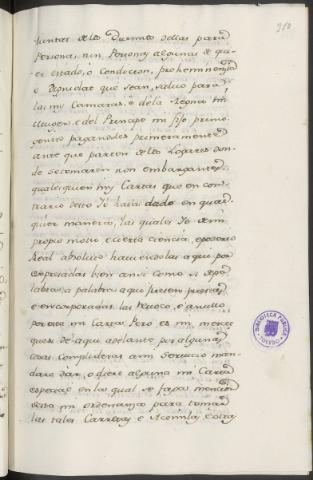 310
Juntas de los Durmits dellas para
Persona, nin Personas algunas de qual-
er estado, ó Condicion, prohemnencia
o Dignidat que sean, salvo para
las mis Camaras, e de la Reyna mi
e del Principe mi fijo primo
genito pagandoles primeramente
ante que partan de los Logares don-
de se tomaren non embargantes
qualesquier mis Cartas que en con-
trario desto Yo haia dado en qual
quier manera, las quales Yo de mi
propio motu e cierta ciencia, e poderio
Real absoluto haviendolas aqui por
espresadas bien ansi como si de pa-
labra a palabra aqui fuesen puestas
e encorporadas las revoco, e anullo
por esta mi Carta. Pero es mi merced
que si de aqui adelante por algunas
cosas complideras a mi servicio man-
dare dar, o diere alguna mi Carta
especial en la qual se faga mencion
desta mi ordenanza para tomar
las tales Carretas e Acemilas, e otras
BIBLIOTECA PUBLICA
TOLEDO